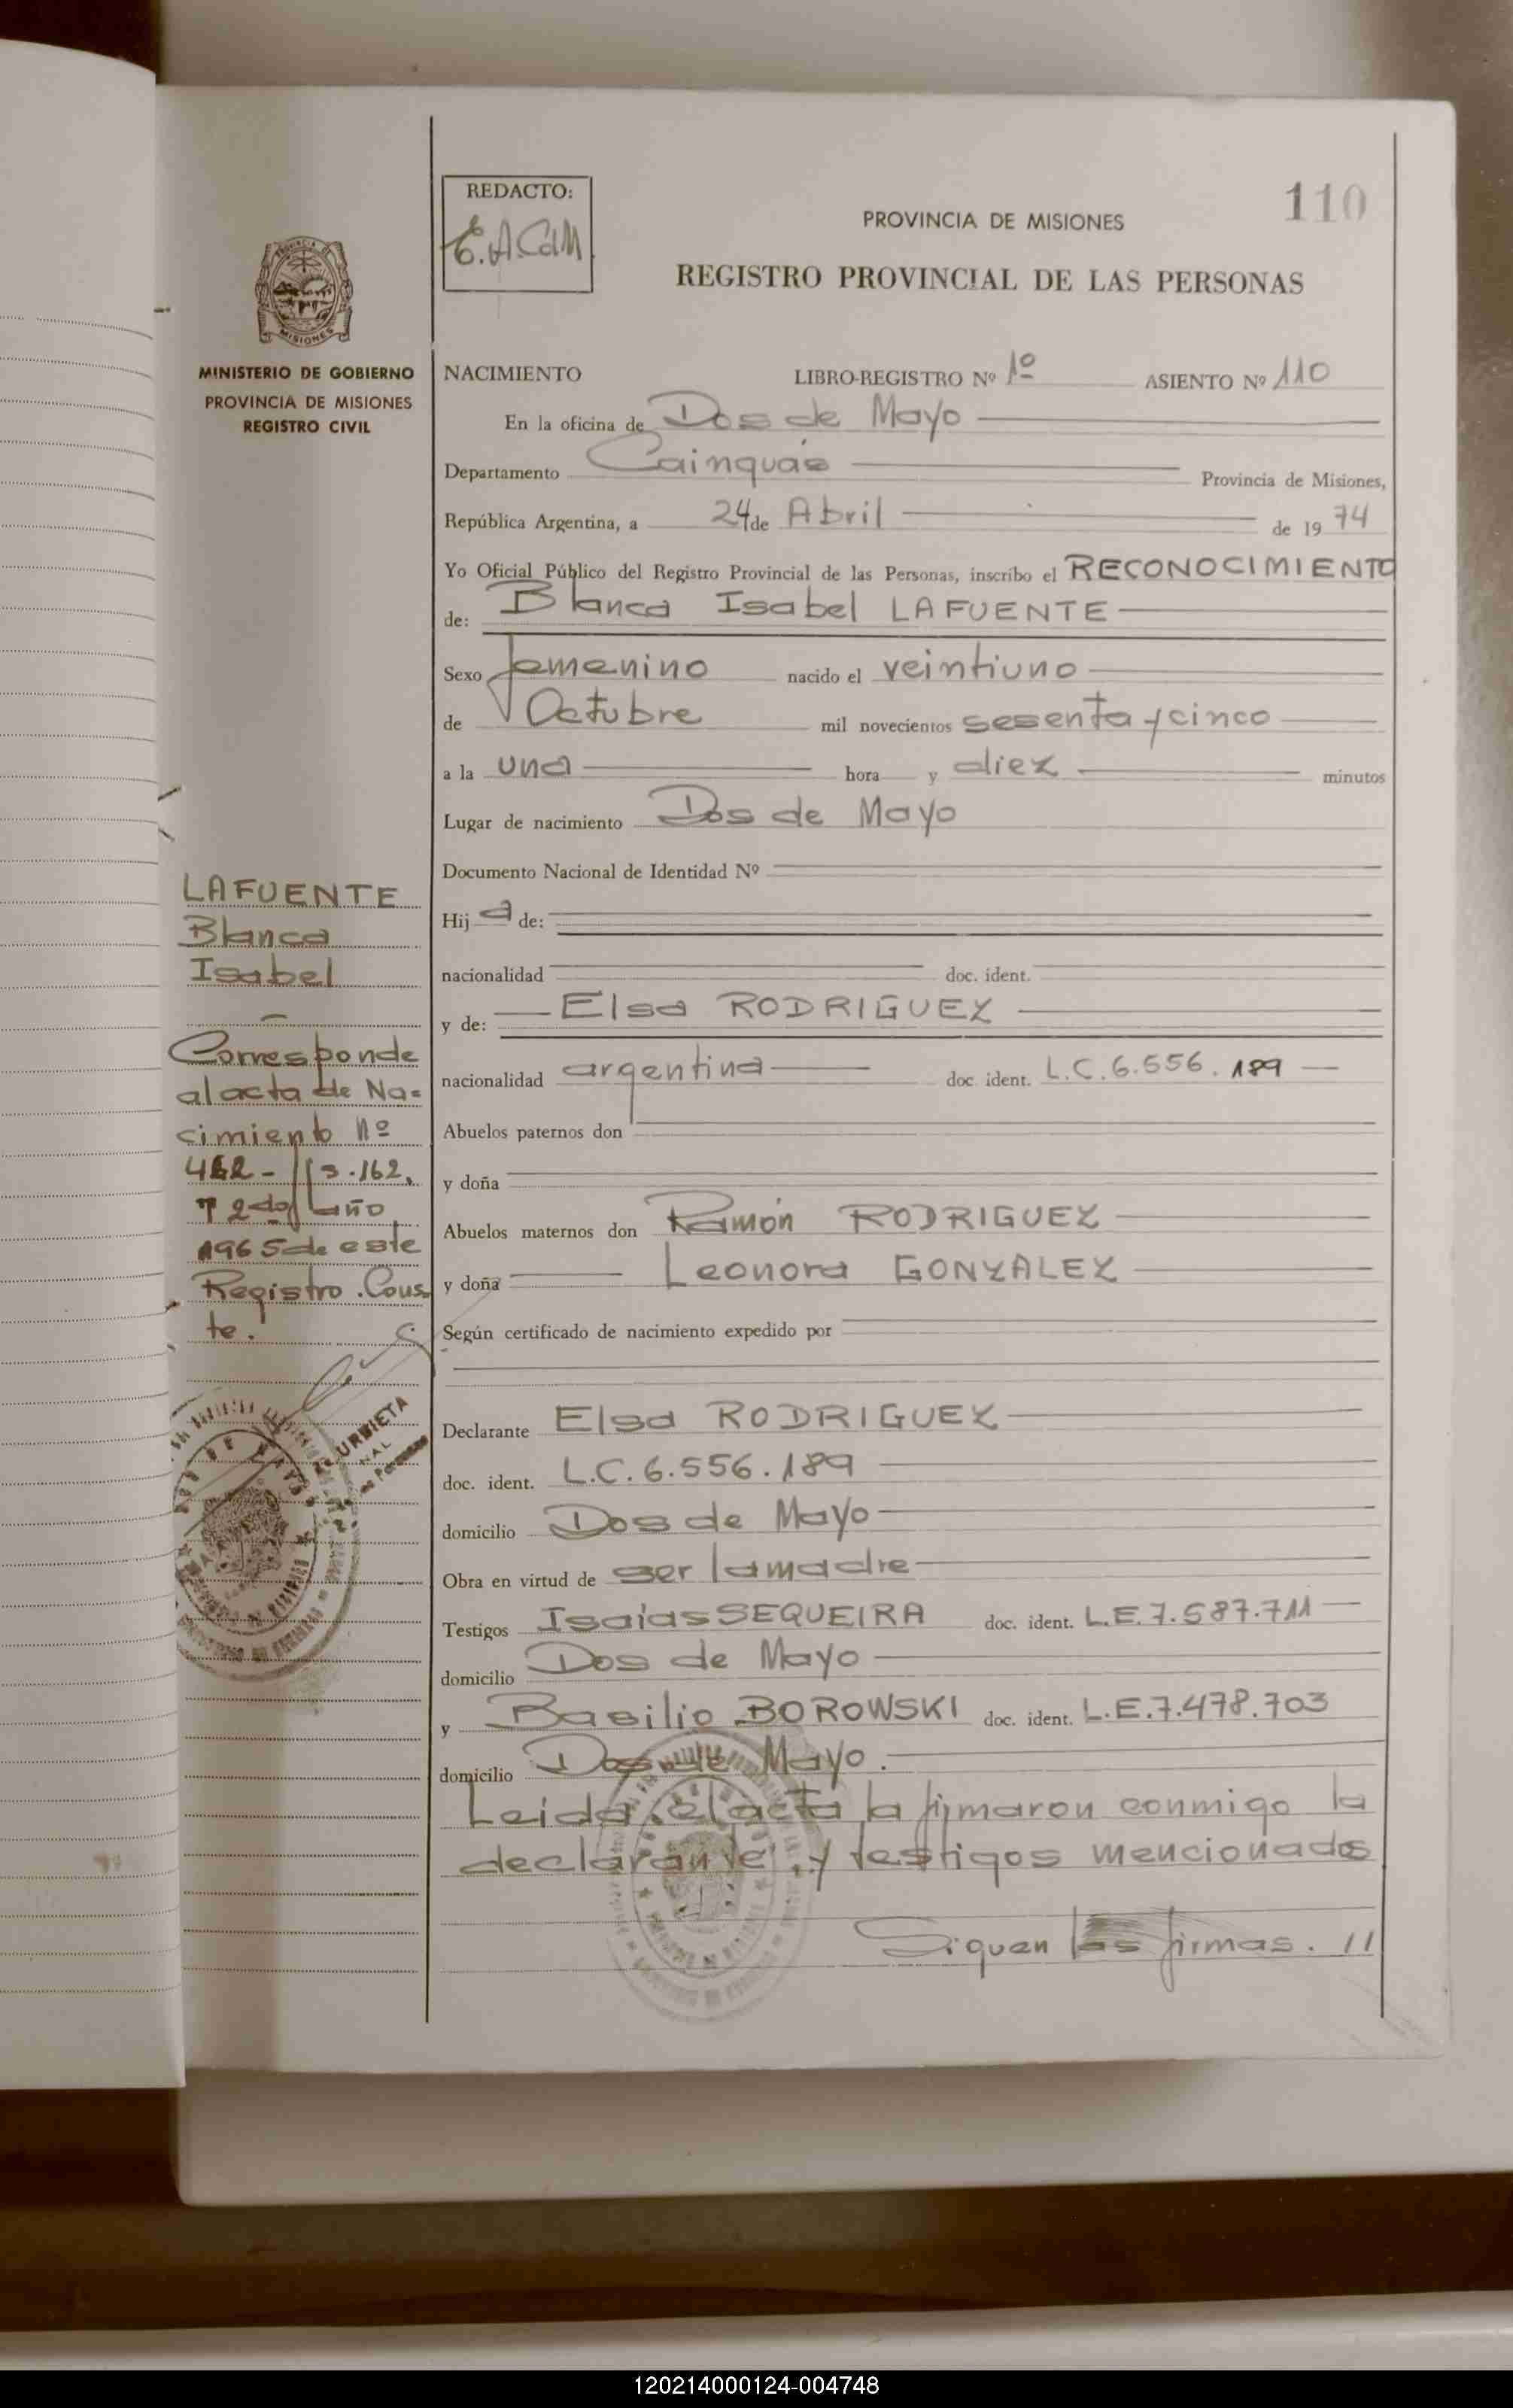 REDACTO:
E.A.CdM
110
PROVINCIA DE MISIONES
REGISTRO PROVINCIAL DE LAS PERSONAS
MISIONES
MINISTERIO DE GOBIERNO
PROVINCIA DE MISIONES
REGISTRO CIVIL
NACIMIENTO LIBRO-REGISTRO Nº 1º ASIENTO Nº 110
En la oficina de Dos de Mayo
Departamento Cainguás Provincia de Misiones,
República Argentina, a 24 de Abril de 1974
Yo Oficial Público del Registro Provincial de las Personas, inscribo el RECONOCIMIENTO
de: Blanca Isabel LAFUENTE
Sexo femenino nacido el veintiuno
de Octubre mil novecientos sesenta y cinco
a la una hora y diez minutos
Lugar de nacimiento Dos de Mayo
Documento Nacional de Identidad Nº
Hij a de:
nacionalidad doc. ident.
y de: Elsa RODRIGUEZ
nacionalidad argentina doc. ident. L.C. 6.556.189
Abuelos paternos don
y doña
Abuelos maternos don Ramón RODRIGUEZ
y doña Leonora GONZALEZ
Según certificado de nacimiento expedido por
Declarante Elsa RODRIGUEZ
doc. ident. L.C. 6.556.189
domicilio Dos de Mayo
Obra en virtud de ser la madre
Testigos Isaías SEQUEIRA doc. ident. L.E. 7.587.711
domicilio Dos de Mayo
y Basilio BOROWSKI doc. ident. L.E. 7.478.703
domicilio Dos de Mayo.
Leida el acta la firmaron conmigo la
declarante y testigos mencionados
Siguen las firmas. //
LAFUENTE
Blanca
Isabel
Corresponde
al acta de Na=
cimiento nº
162,
año
1965 de este
Registro. Cons-
te.
URBIETA
120214000124-004748